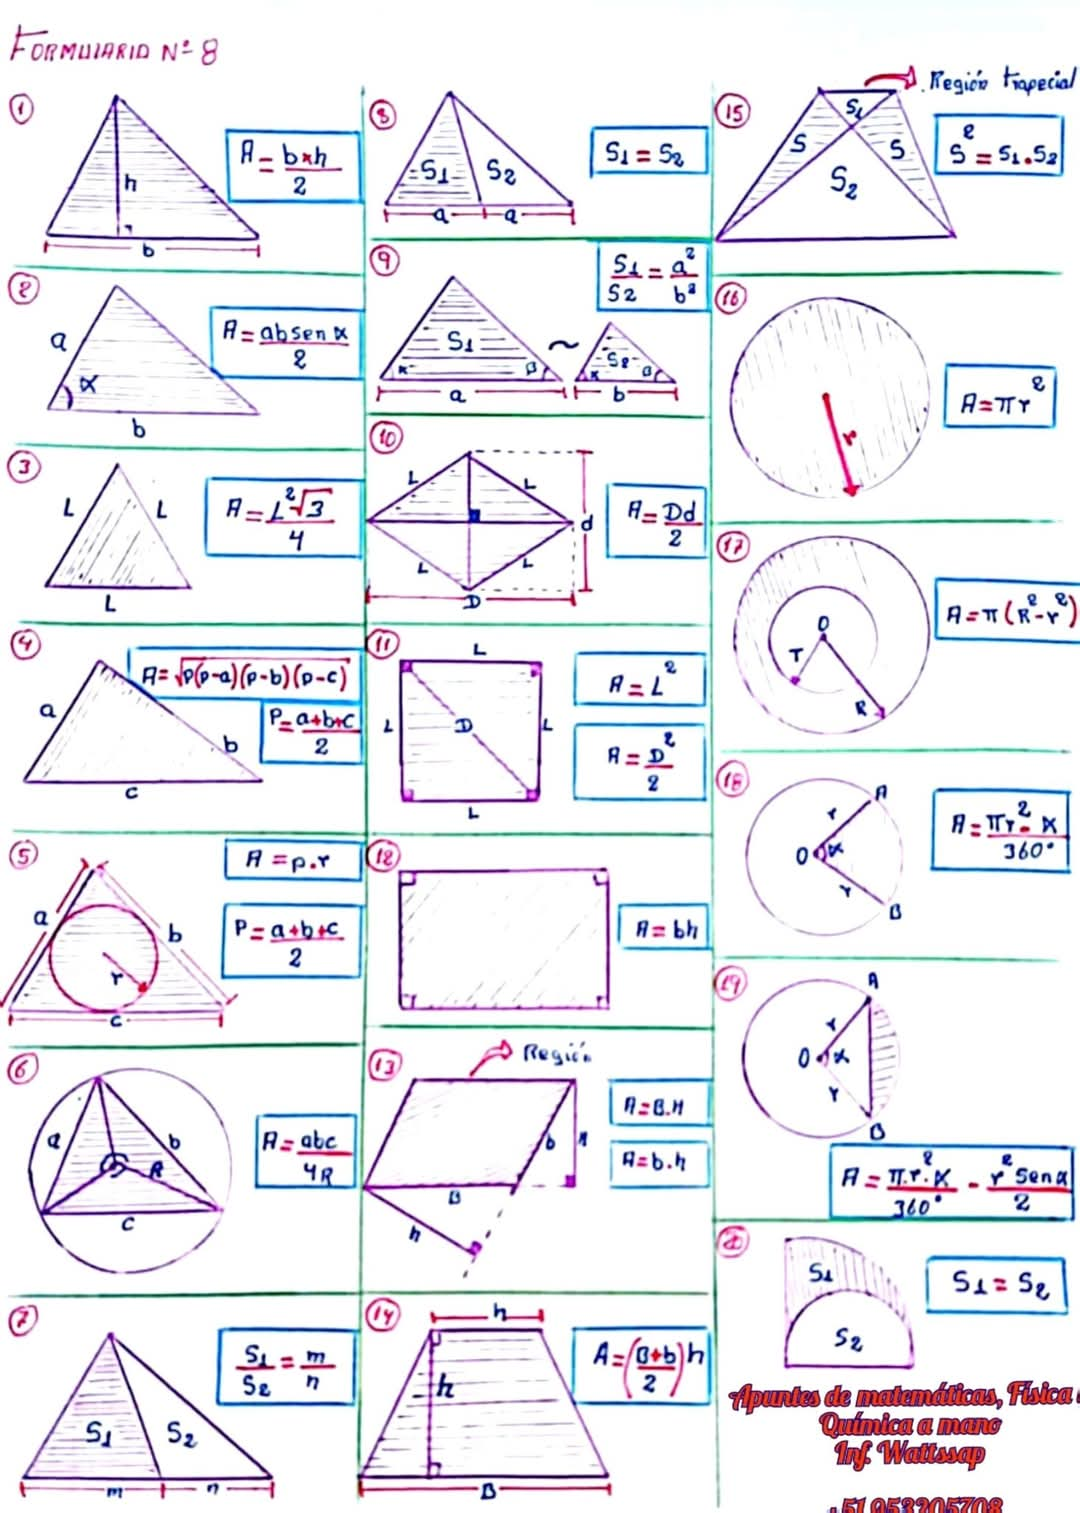 FORMULARIO Nº 8
1
h
b
A = b×h / 2
2
a
α
b
A = ab sen α / 2
3
L
L
L
A = L²√3 / 4
4
a
b
c
A = √p(p-a)(p-b)(p-c)
P = a+b+c / 2
5
a
b
r
c
A = p.r
P = a+b+c / 2
6
a
b
R
c
A = abc / 4R
7
S1
S2
m
n
S1 / S2 = m / n
8
S1
S2
a
a
S1 = S2
9
S1
α
β
a
~
S2
α
β
b
S1 / S2 = a² / b²
10
L
L
L
L
d
D
A = Dd / 2
11
L
L
D
L
L
A = L²
A = D² / 2
12
A = bh
13
Región
b
H
B
h
A = B.H
A = b.h
14
h
h
B
A = (B+b / 2) h
15
Región trapecial
S1
S
S
S2
S² = S1.S2
16
r
A = πr²
17
O
r
R
A = π(R²-r²)
18
A
r
O
α
r
B
A = πr².α / 360°
19
A
r
O
α
r
B
A = π.r².α / 360° - r² Sen α / 2
20
S1
S2
S1 = S2
Apuntes de matemáticas, Física
Química a mano
Inf. Wattssap
+51 953205708